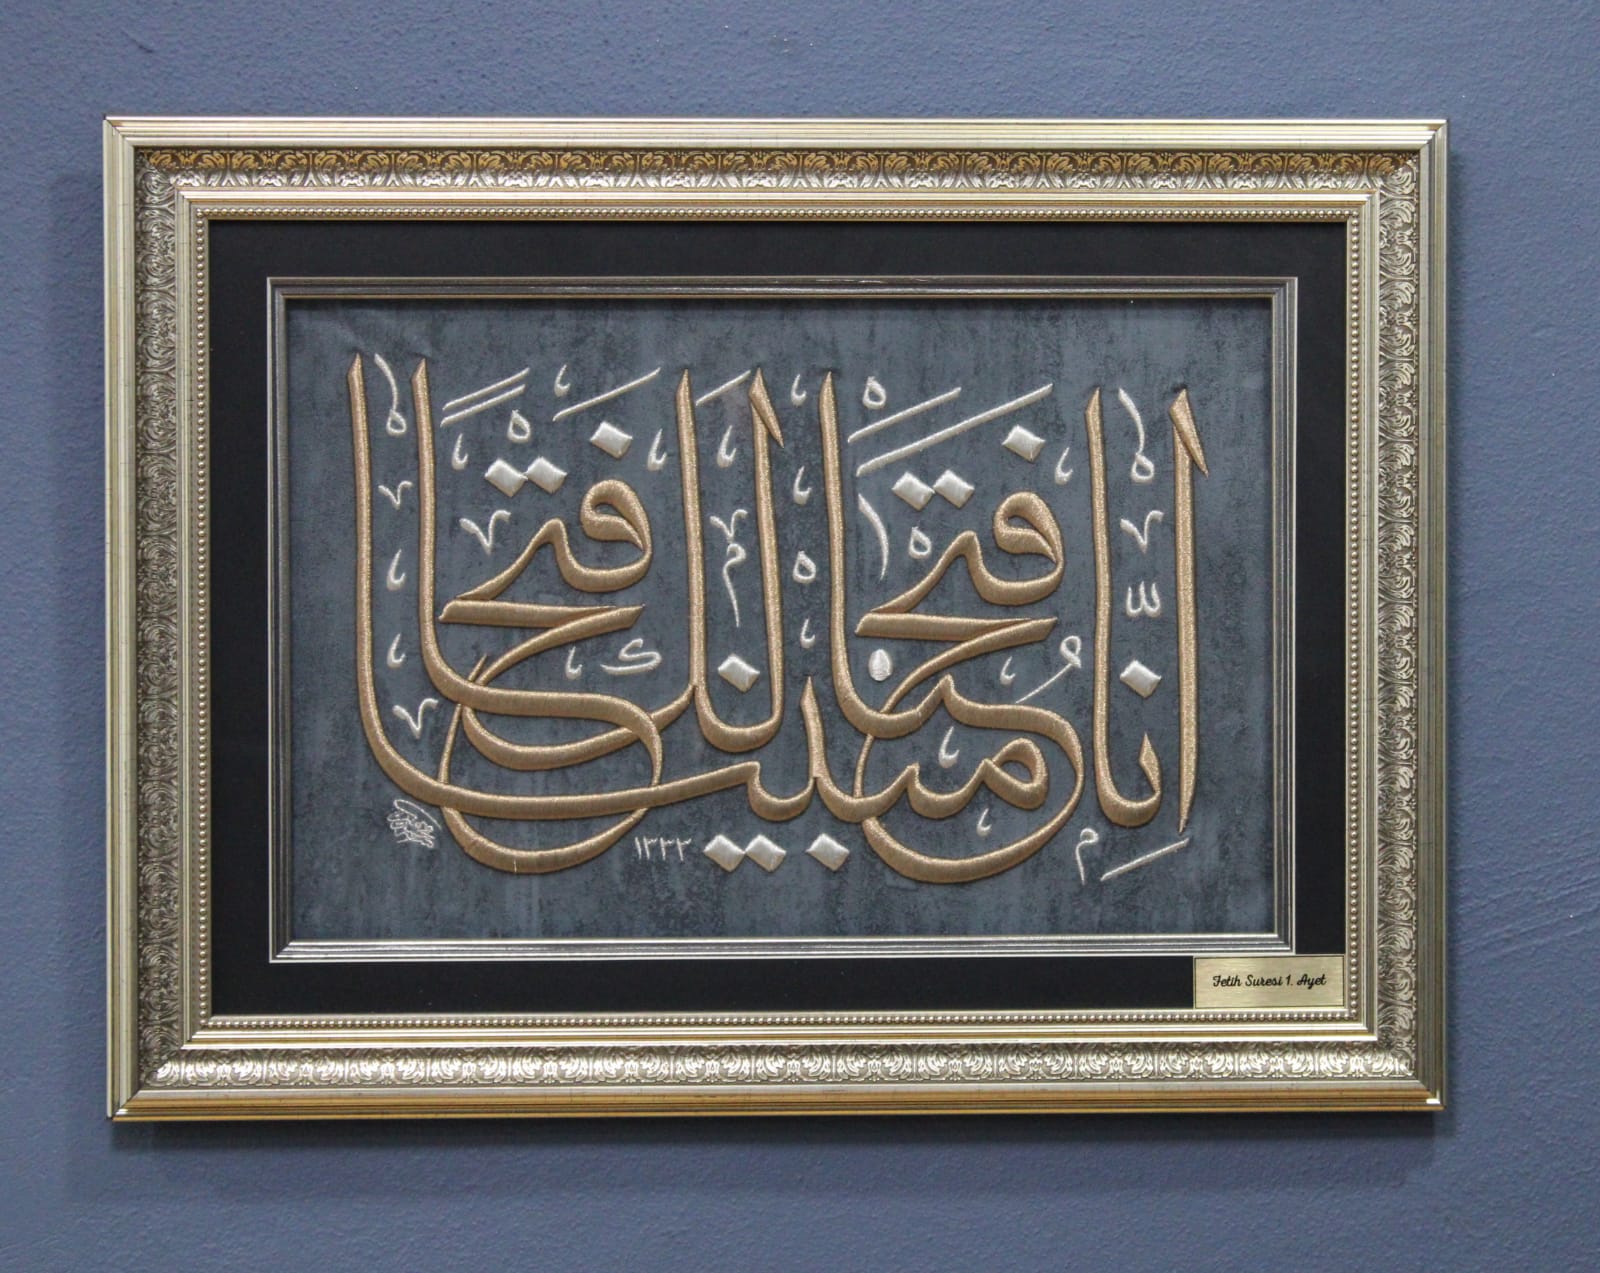 إِنَّا فَتَحْنَا لَكَ فَتْحًا مُبِينًا
١٣٢٢
Fetih Suresi 1. Ayet